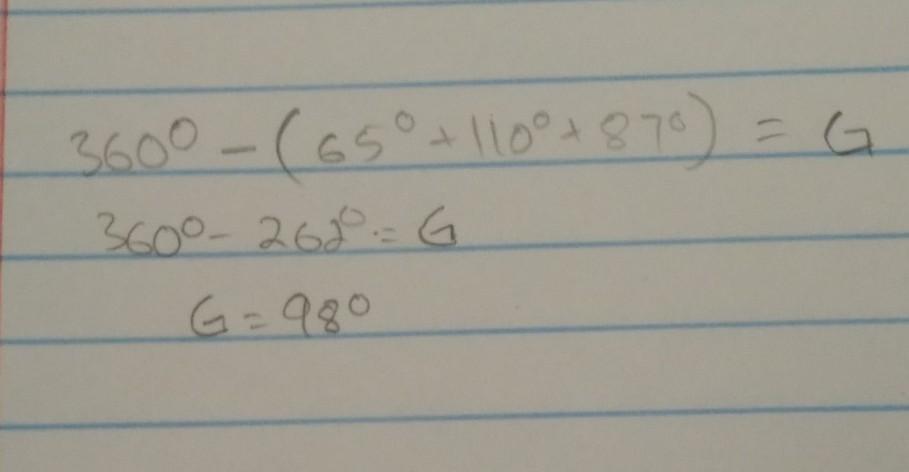 360° - (65° + 110° + 87°) = G
360° - 262° = G
G = 98°